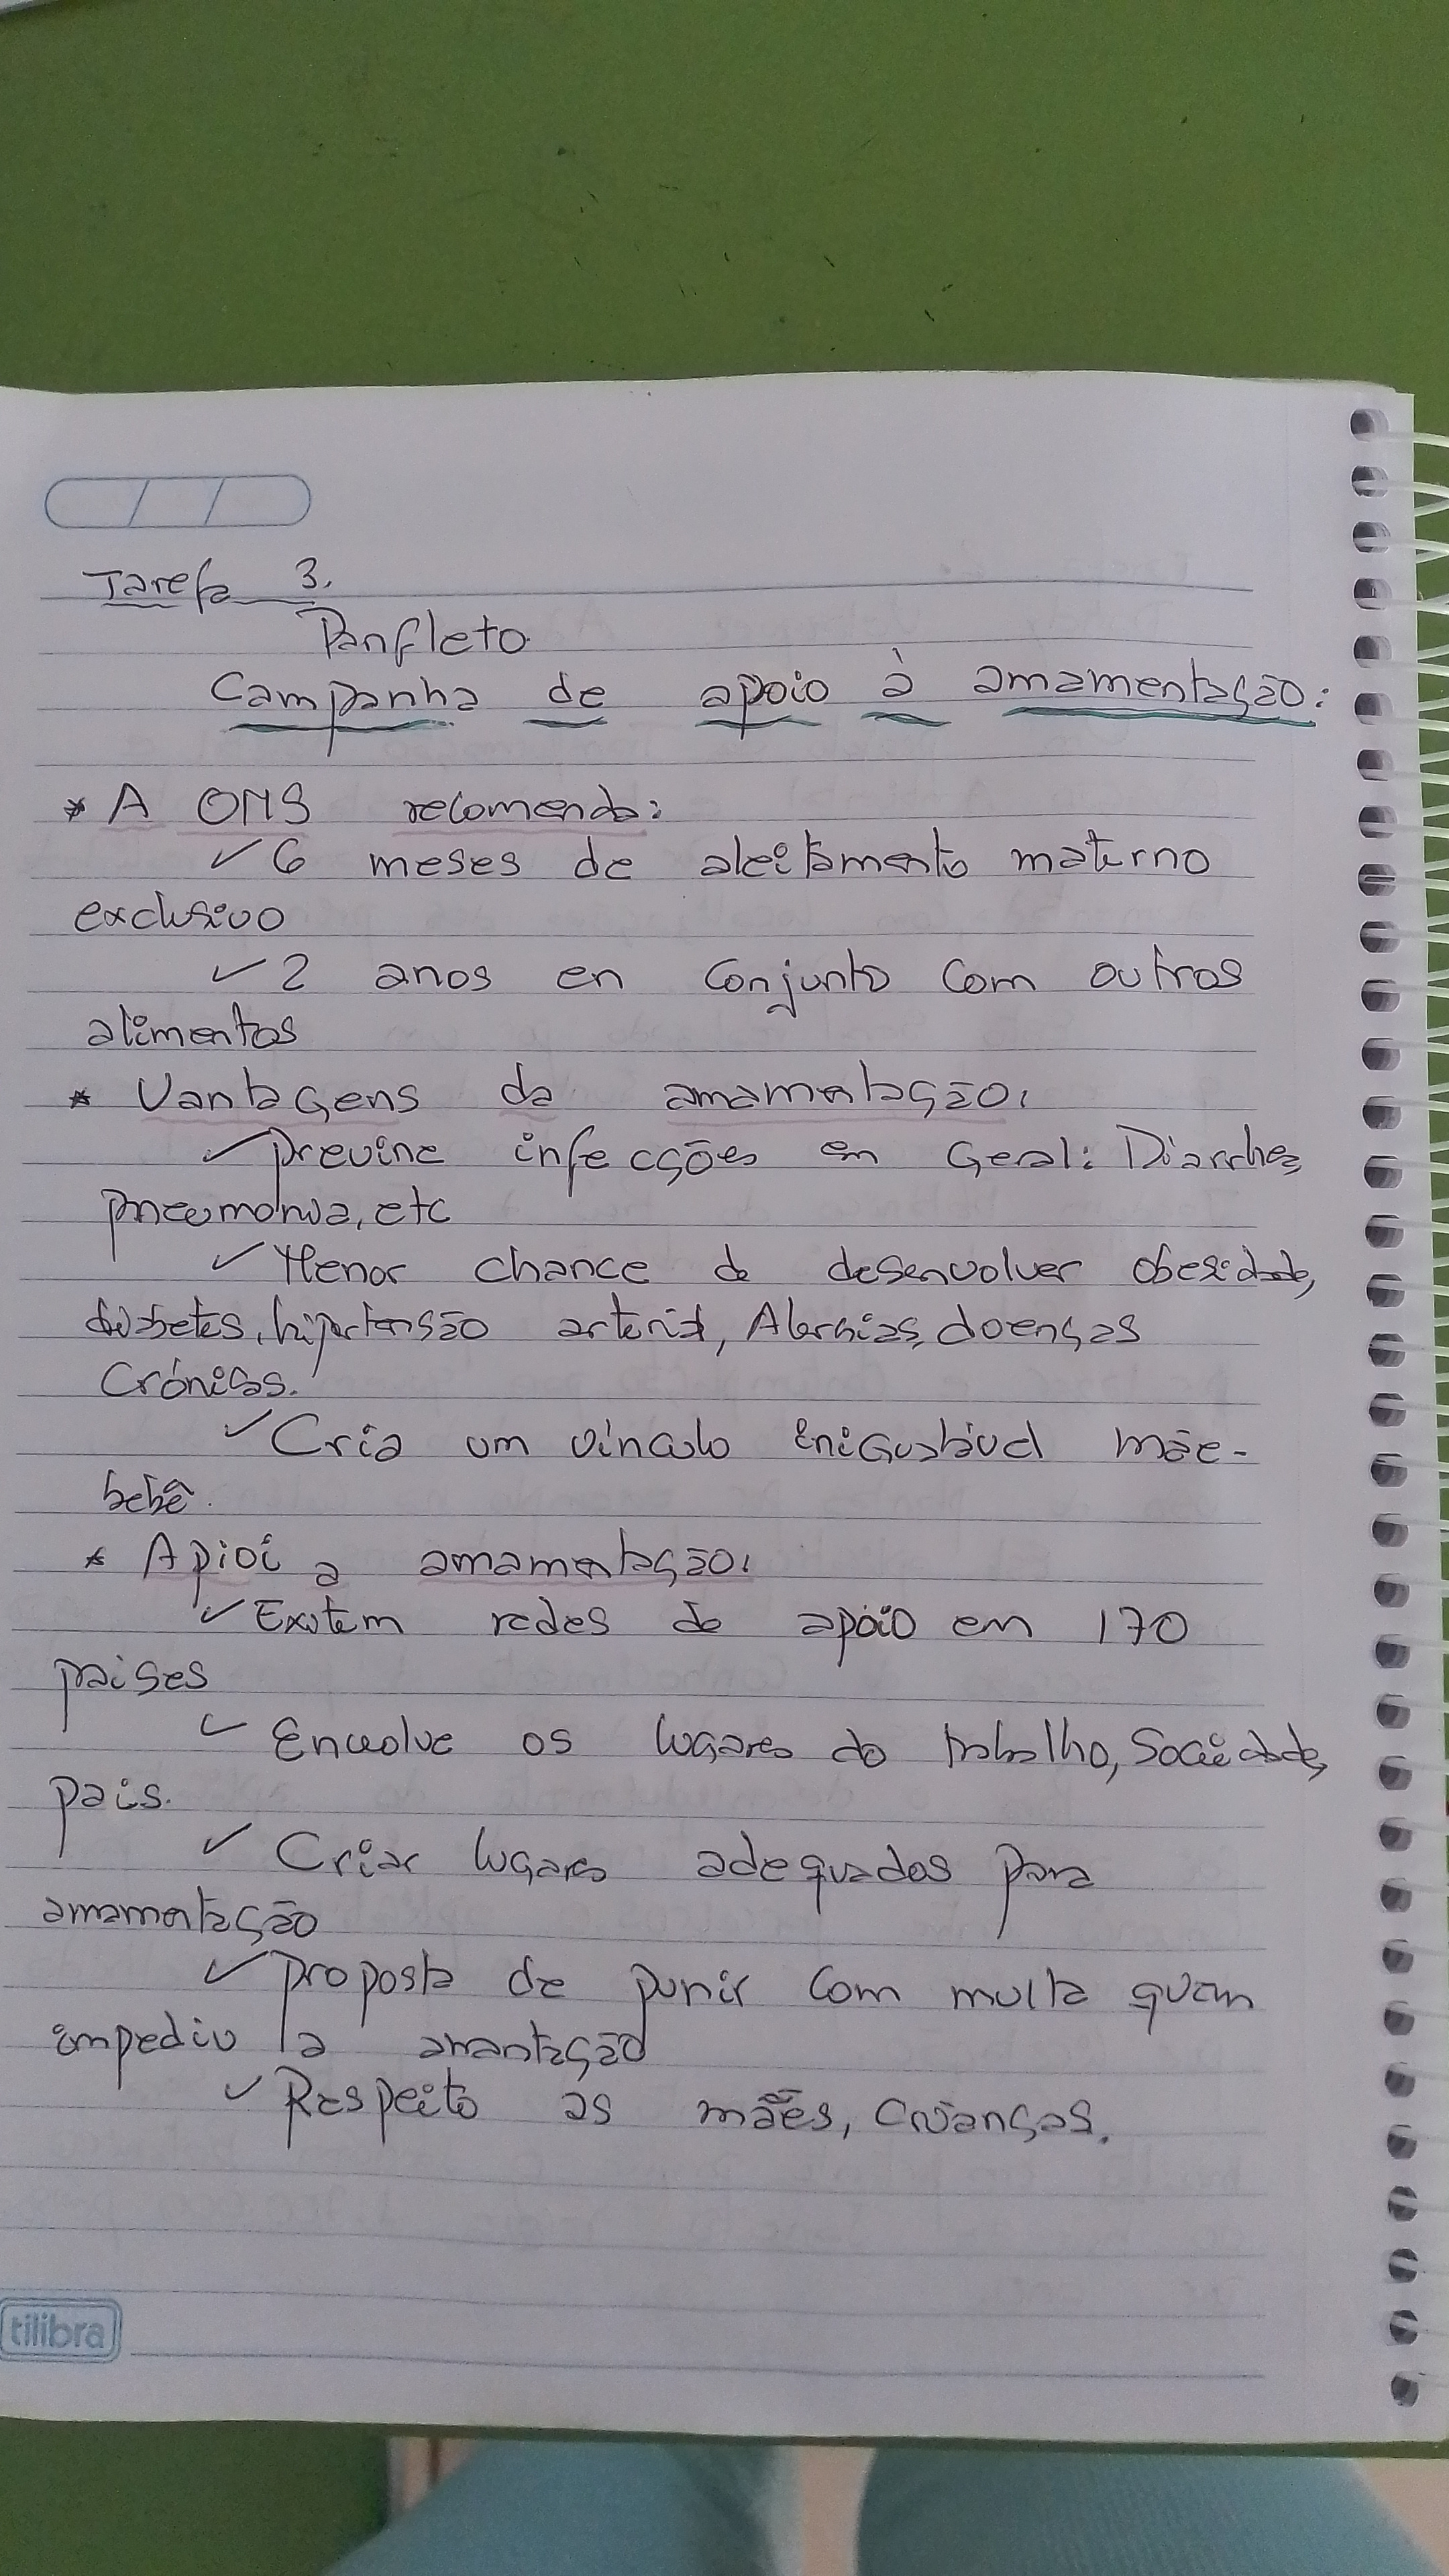 Tarefa 3.
Panfleto
Campanha de apoio à amamentação:
* A OMS recomenda:
✓ 6 meses de aleitamento materno
exclusivo
✓ 2 anos en conjunto com outros
alimentos
* Vantagens da amamentação:
✓ previne infecções em Geral: Diarrhea,
pneumonia, etc
✓ Menor chance de desenvolver obesidade,
diabetes, hipertensão arterial, Alergias, doenças
Crónicas.
✓ Cria um vínculo Enigustável mãe-
bebê.
* Apioi a amamentação:
✓ Existem redes de apoio em 170
paises
✓ Envolve os lugares do trabalho, Sociedade,
pais.
✓ Criar lugares adequados para
amamentação
✓ proposta de punir com multa quem
impediu a amantação
✓ Respeito as mães, crianças.
tilibra